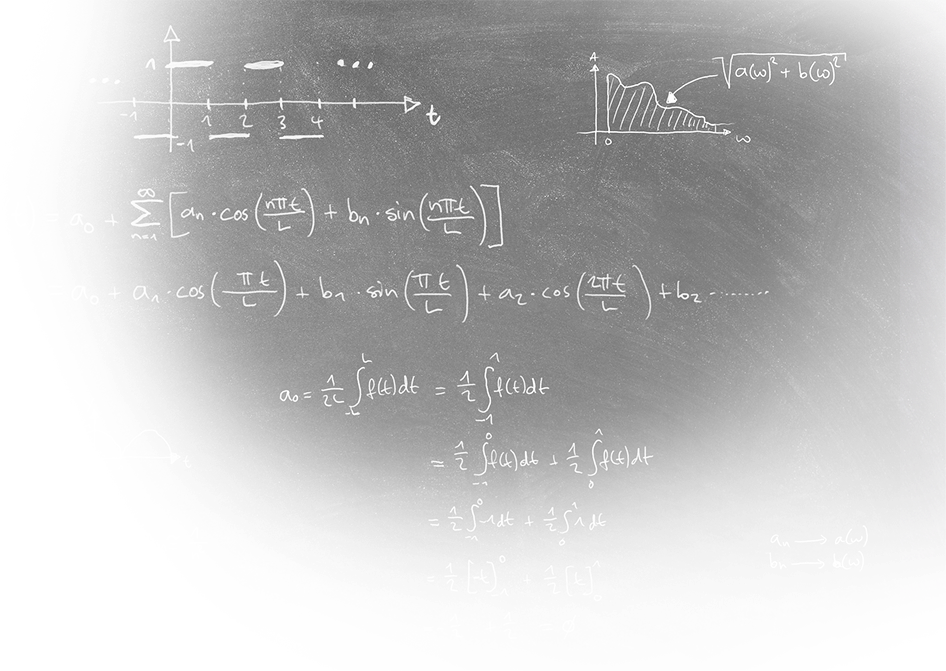 1 ...
... -1 1 2 3 4 t
-1
A √(a(ω)² + b(ω)²)
0 ω
a₀ + ∑ₙ₌₁^∞ [aₙ · cos(nπt/L) + bₙ · sin(nπt/L)]
a₀ + a₁ · cos(πt/L) + b₁ · sin(πt/L) + a₂ · cos(2πt/L) + b₂ ........
a₀ = 1/2L ∫₋L^L f(t)dt = 1/2 ∫₋₁^1 f(t)dt
= 1/2 ∫₋₁^0 f(t)dt + 1/2 ∫₀^1 f(t)dt
= 1/2 ∫₋₁^0 -1dt + 1/2 ∫₀^1 1dt
aₙ → a(ω)
bₙ → b(ω)